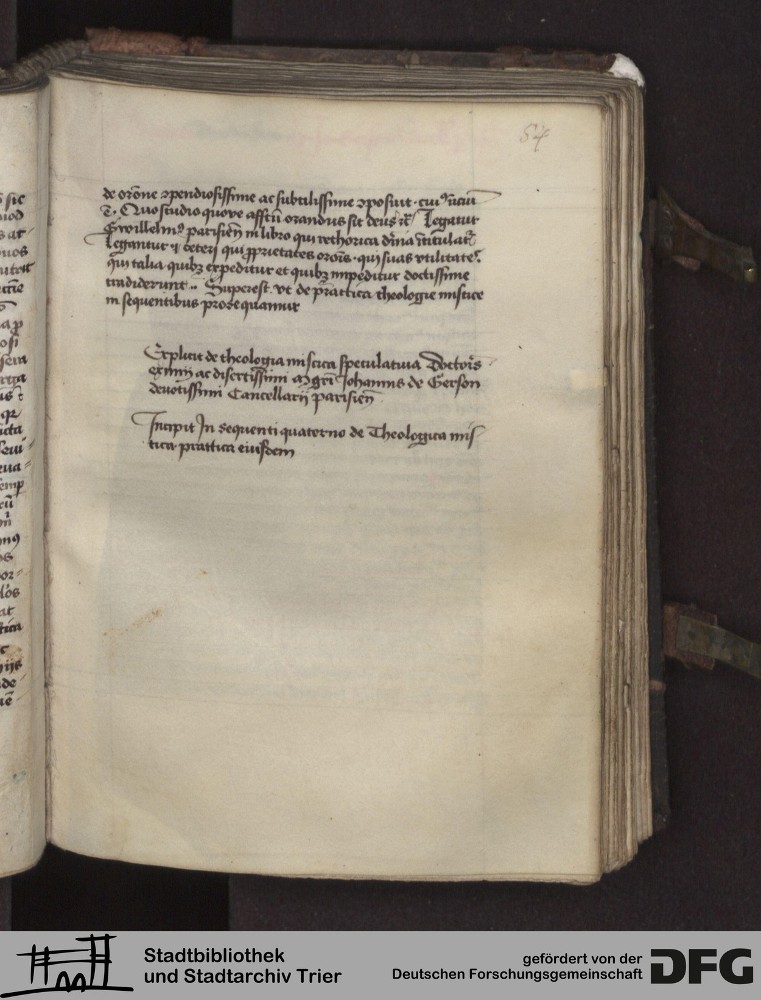 54
de orōne ꝯpendiosissime ac subtilissime ꝯposuit
Quo studio quove affctū orandus sit deus ⁊c̄ Legatur
Gwillelmꝰ parisien̄ in libro qui rethorica dīna
Legantur ⁊ ceteri qui ꝓprietates orōis qui suas vtilitates
qui talia quibꝫ expeditur et quibꝫ impeditur doctissime
tradiderunt Superest vt de prāctica theologie mistice
in sequentibus prosequamur
Explicit de theologia mistica speculatiua Doctoris
eximii ac disertissimi mgr̄i Johannis de Gerson
deuotissimi Cancellarij parisien̄
Incipit In sequenti quaterno de Theologica mis
tica practica eiusdem
Stadtbibliothek
und Stadtarchiv Trier
gefördert von der
Deutschen Forschungsgemeinschaft
DFG